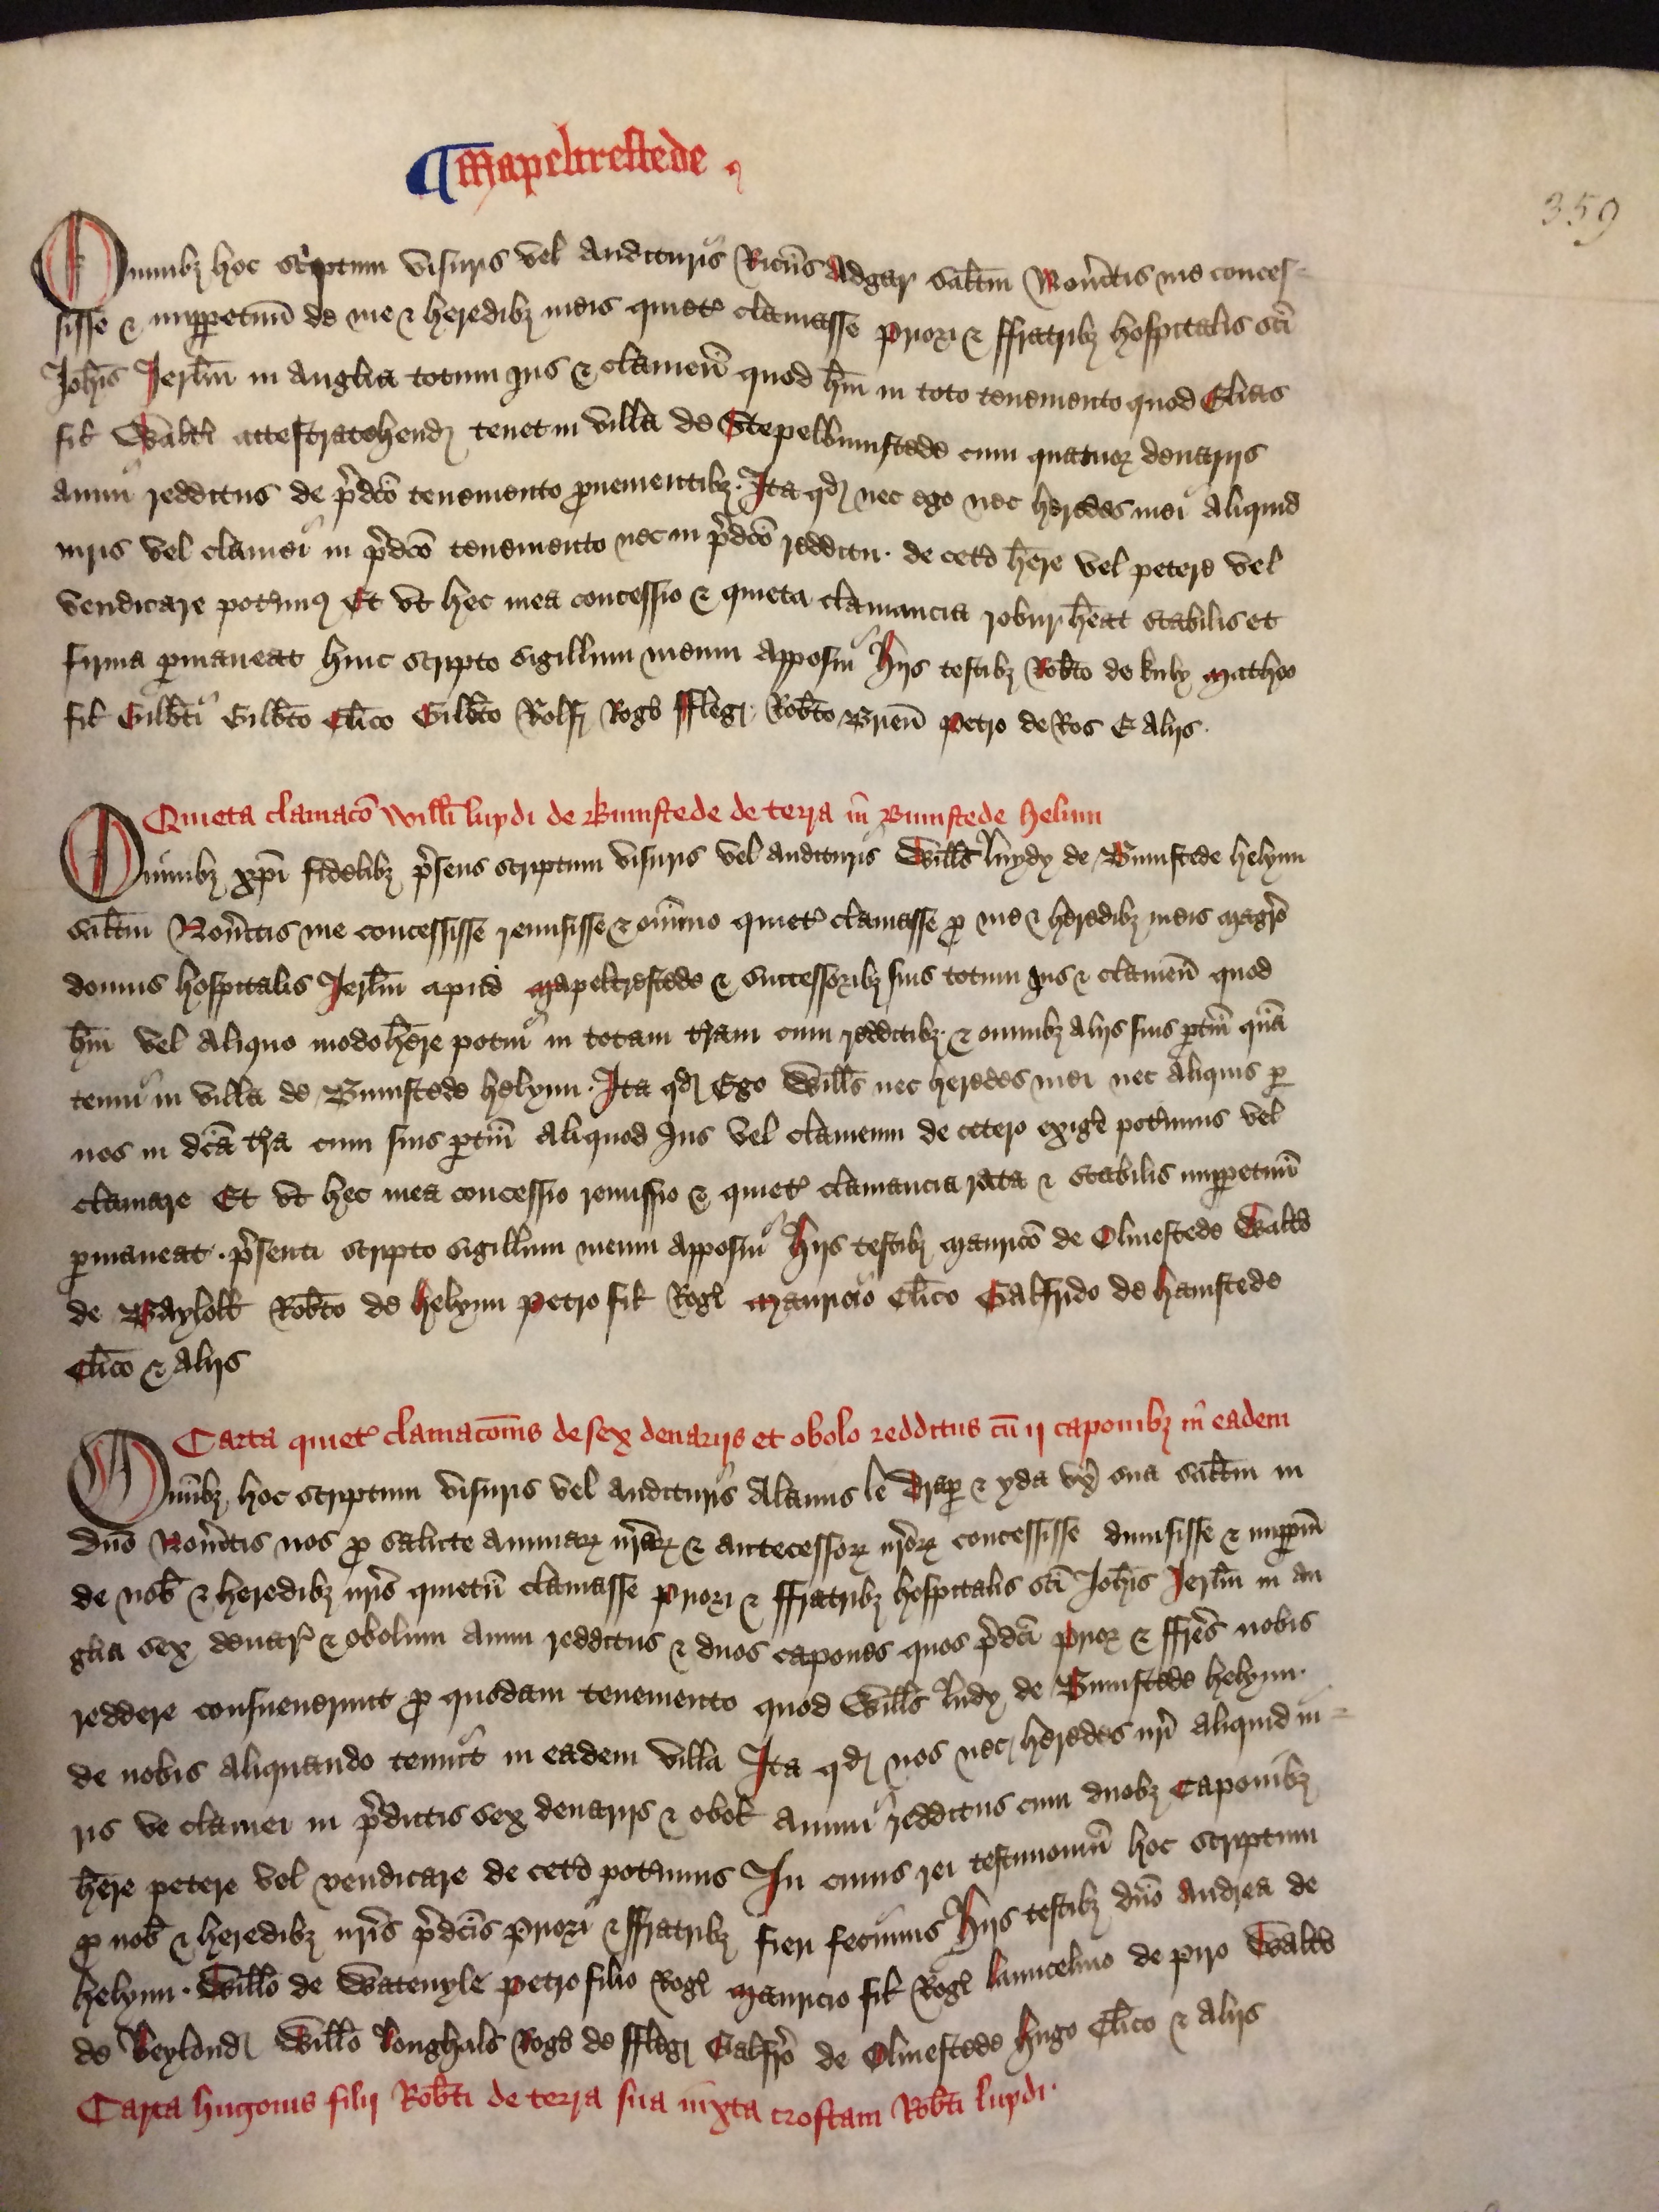 ¶ Mapeltrestede
359
Omnibȝ hoc scriptum visuris vel audituris Ricūs Adgar saltm̄ Nov̄itis me conces-
sisse & imppetuū de me & heredibȝ meis quiet' clamasse Priori & ffratribȝ hospitalis sci
Johis Jerlm̄ in Anglia totum ius & clameū quod hui in toto tenemento quod Elias
fil Walti attestratehend tenet in villa de Stepelbumstede cum quatuor denariis
annui redditus de p̄dco tenemento pvenientibȝ. Ita qd nec ego nec heredes mei aliquid
iuris vel clamei in p̄dco tenemento nec in p̄dco redditu. de ceto h̄ere vel petere vel
vendicare potimus Et vt hec mea concessio & quieta clamancia robur h̄eat stabilis et
firma pmaneat huic scripto sigillum meum apposui Hiis testibȝ Robto de Matheo
fil Gilbti Gilbto Clico Gilbto Rolf Rogo ffleg Robto Brien Petro de Ros & Aliis.
Quieta clamaco Willi luydi de Bumstede de terra in Bumstede helun
Omnibȝ xpi fidelibȝ p̄sens scriptum visuris vel audituris Wills luydy de Bumstede helyun
saltm̄ Nov̄itis me concessisse remisisse & om̄ino quiet' clamasse p me & heredibȝ meis magro
domus hospitalis Jerlm̄ apud Mapeltrestede & successoribȝ suis totum ius & clameū quod
hui vel aliquo modo h̄ere potui in totam t̄ram cum redditibȝ & omnibȝ aliis suis ptin̄ quā
tenui in villa de Bumstede helyun. Ita qd Ego Wills nec heredes mei nec aliquis p
nos in dcā t̄ra cum suis ptin̄ aliquod ius vel clameum de cetero exige potimus vel
clamare Et vt hec mea concessio remissio & quiet' clamancia rata & stabilis imppetuū
pmaneat. p̄senti scripto sigillum meum apposui Hiis testibȝ Mauricō de Olmestede Walto
de Robto de helyun Petro fil Rogi Mauricio Clico Galfrido de hamstede
Clico & aliis
Carta quiet' clamacōnis de sex denariis et obolo redditus cū ij caponibȝ in eadem
Omībȝ hoc scriptum visuris vel audituris Alanus le Drap & yda ux sua saltm̄ in
dno Nov̄itis nos p salute animaꝝ nraꝝ & antecessoꝝ nroꝝ concessisse dimisisse & imppm̄
de nob & heredibȝ nris quietū clamasse Priori & ffratribȝ hospitalis sci Johis Jerlm̄ in An
glia sex denar' & obolum annui redditus & duos capones quos p̄dci Prior & ffres nobis
reddere consueuerunt p quodam tenemento quod Wills ludy de Bumstede helyun.
de nobis aliquando tenuit in eadem villa Ita qd nos nec heredes nri aliquid iu-
ris ve clamei in p̄dictis sex denariis & obol annui redditus cum duobȝ caponibȝ
h̄ere petere vel vendicare de ceto potimus In cuius rei testimoniū hoc scriptum
p nob & heredibȝ nris p̄dcis Priori & ffratribȝ fieri fecimus Hiis testibȝ dno Andrea de
helyun. Willo de Watenyle Petro filio Rogi Mauricio fil Rogi launcelino de piro Walto
de Beylond Willo longhals Rogo de ffleg Galfro de Olmestede hugo Clico & aliis
Carta hugonis filii Robti de terra sua iuxta croftam Robti luydi.